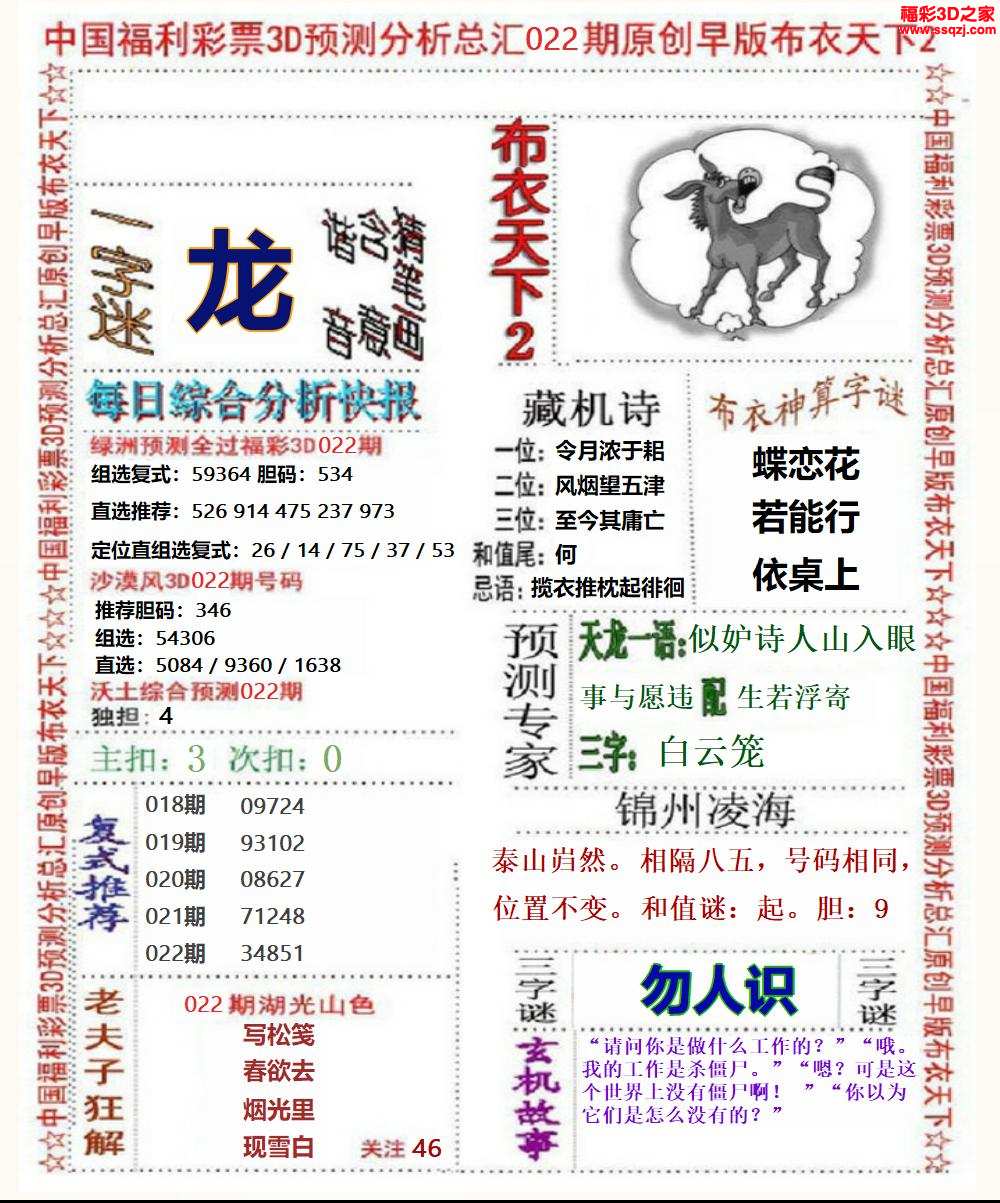 福彩3D之家
www.ssqzj.com
中国福利彩票3D预测分析总汇022期原创早版布衣天下2
☆☆中国福利彩票3D预测分析总汇原创早版布衣天下☆☆中国福利彩票3D预测分析总汇原创早版布衣天下☆☆
一字迷
龙
猜含音意
布衣天下2
每日综合分析快报
绿洲预测全过福彩3D022期
组选复式：59364 胆码：534
直选推荐：526 914 475 237 973
定位直组选复式：26 / 14 / 75 / 37 / 53
沙漠风3D022期号码
推荐胆码：346
组选：54306
直选：5084 / 9360 / 1638
沃土综合预测022期
独担：4
主扣：3 次扣：0
复式推荐
018期 09724
019期 93102
020期 08627
021期 71248
022期 34851
老夫子狂解
022期湖光山色
写松笺
春欲去
烟光里
现雪白 关注 46
藏机诗
一位：令月浓于耜
二位：风烟望五津
三位：至今其庸亡
和值尾：何
忌语：揽衣推枕起徘徊
布衣神算字谜
蝶恋花
若能行
依桌上
预测专家
天龙一语：似妒诗人山入眼
事与愿违 配 生若浮寄
三字：白云笼
锦州凌海
泰山岿然。相隔八五，号码相同，
位置不变。和值谜：起。胆：9
三字谜
勿人识
三字谜
玄机故事
“请问你是做什么工作的？”“哦。
我的工作是杀僵尸。”“嗯？可是这
个世界上没有僵尸啊！ ”“你以为
它们是怎么没有的？”
☆☆中国福利彩票3D预测分析总汇原创早版布衣天下☆☆中国福利彩票3D预测分析总汇原创早版布衣天下☆☆